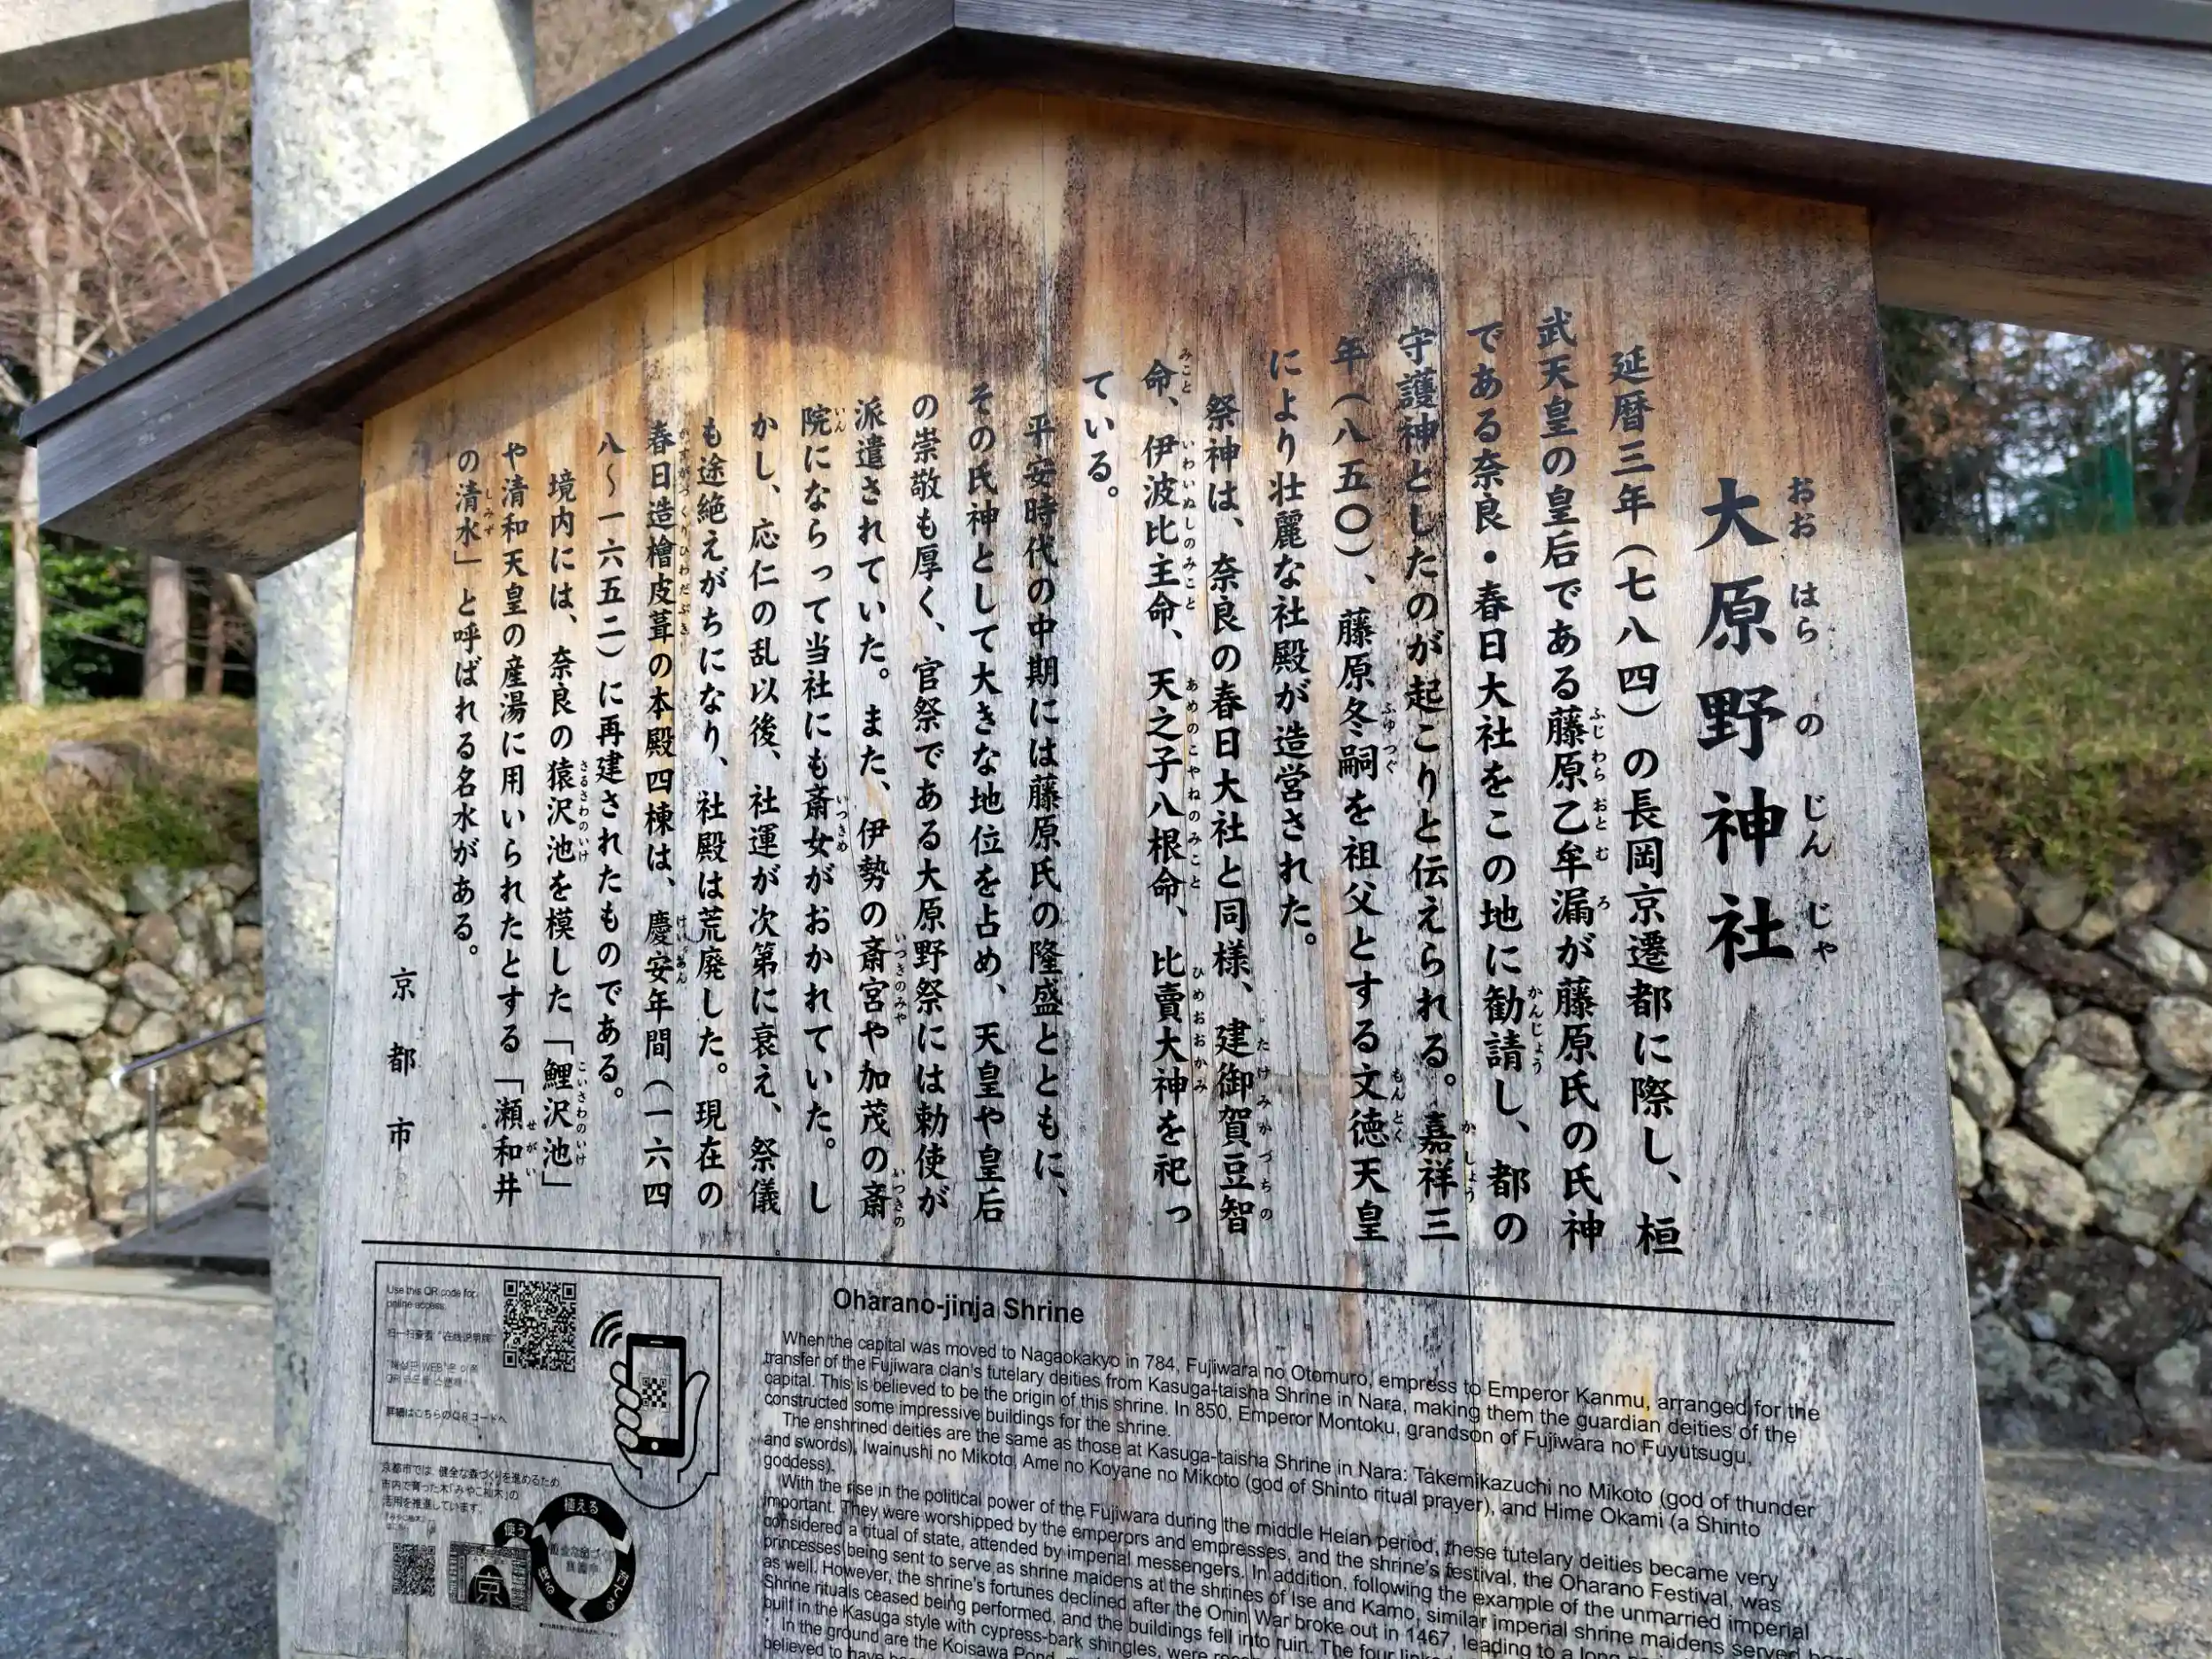 大原野神社
おおはらのじんじゃ
延暦三年（七八四）の長岡京遷都に際し、桓
武天皇の皇后である藤原乙牟漏が藤原氏の氏神
ふじわらおとむろ
である奈良・春日大社をこの地に勧請し、都の
かんじょう
守護神としたのが起こりと伝えられる。嘉祥三
かしょう
年（八五〇）、藤原冬嗣を祖父とする文徳天皇
ふゆつぐ もんとく
により壮麗な社殿が造営された。
祭神は、奈良の春日大社と同様、建御賀豆智
たけみかづちの
命、伊波比主命、天之子八根命、比賣大神を祀っ
みこと いわいぬしのみこと あめのこやねのみこと ひめおおかみ
ている。
平安時代の中期には藤原氏の隆盛とともに、
その氏神として大きな地位を占め、天皇や皇后
の崇敬も厚く、官祭である大原野祭には勅使が
派遣されていた。また、伊勢の斎宮や加茂の斎
いつきのみや いつきの
院にならって当社にも斎女がおかれていた。し
いん いつきめ
かし、応仁の乱以後、社運が次第に衰え、祭儀
も途絶えがちになり、社殿は荒廃した。現在の
春日造檜皮葺の本殿四棟は、慶安年間（一六四
かすがづくりひわだぶき けいあん
八～一六五二）に再建されたものである。
境内には、奈良の猿沢池を模した「鯉沢池」
さるさわのいけ こいさわのいけ
や清和天皇の産湯に用いられたとする「瀬和井
せがい
の清水」と呼ばれる名水がある。
しみず
京都市
Oharano-jinja Shrine
When the capital was moved to Nagaokakyo in 784, Fujiwara no Otomuro, empress to Emperor Kanmu, arranged for the
transfer of the Fujiwara clan's tutelary deities from Kasuga-taisha Shrine in Nara, making them the guardian deities of the
capital. This is believed to be the origin of this shrine. In 850, Emperor Montoku, grandson of Fujiwara no Fuyutsugu,
constructed some impressive buildings for the shrine.
The enshrined deities are the same as those at Kasuga-taisha Shrine in Nara: Takemikazuchi no Mikoto (god of thunder
and swords), Iwainushi no Mikoto, Ame no Koyane no Mikoto (god of Shinto ritual prayer), and Hime Okami (a Shinto
goddess).
With the rise in the political power of the Fujiwara during the middle Heian period, these tutelary deities became very
important. They were worshipped by the emperors and empresses, and the shrine's festival, the Oharano Festival, was
considered a ritual of state, attended by imperial messengers. In addition, following the example of the unmarried imperial
princesses being sent to serve as shrine maidens at the shrines of Ise and Kamo, similar imperial shrine maidens served here
as well. However, the shrine's fortunes declined after the Onin War broke out in 1467, leading to a long
Shrine rituals ceased being performed, and the buildings fell into ruin. The four
built in the Kasuga style with cypress-bark shingles, were
In the ground are the Koisawa Pond,
believed to have
Use this QR code for
online access.
扫一扫查看"在线说明牌"
詳細はこちらのQRコードへ
京都市では、健全な森づくりを進めるため
市内で育った木「みやこ杣木」の
活用を推進しています。
植える
育てる
使う
京